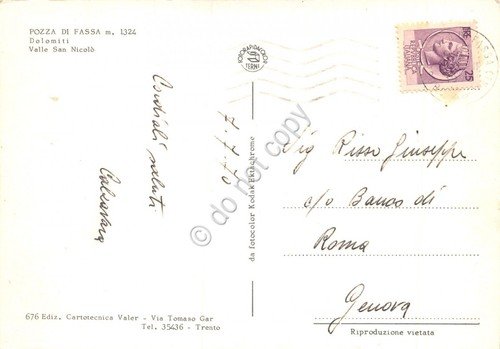 POZZA DI FASSA m. 1324
Dolomiti
Valle San Nicolò
Cordiali saluti
7.7.70
da fotocolor Kodak Ektachrome
Sig Risso Giuseppe
c/o Banco di
Roma
Genova
676 Ediz. Cartotecnica Valer - Via Tomaso Gar
Tel. 35436 - Trento
Riproduzione vietata
TERNI
25
do not copy